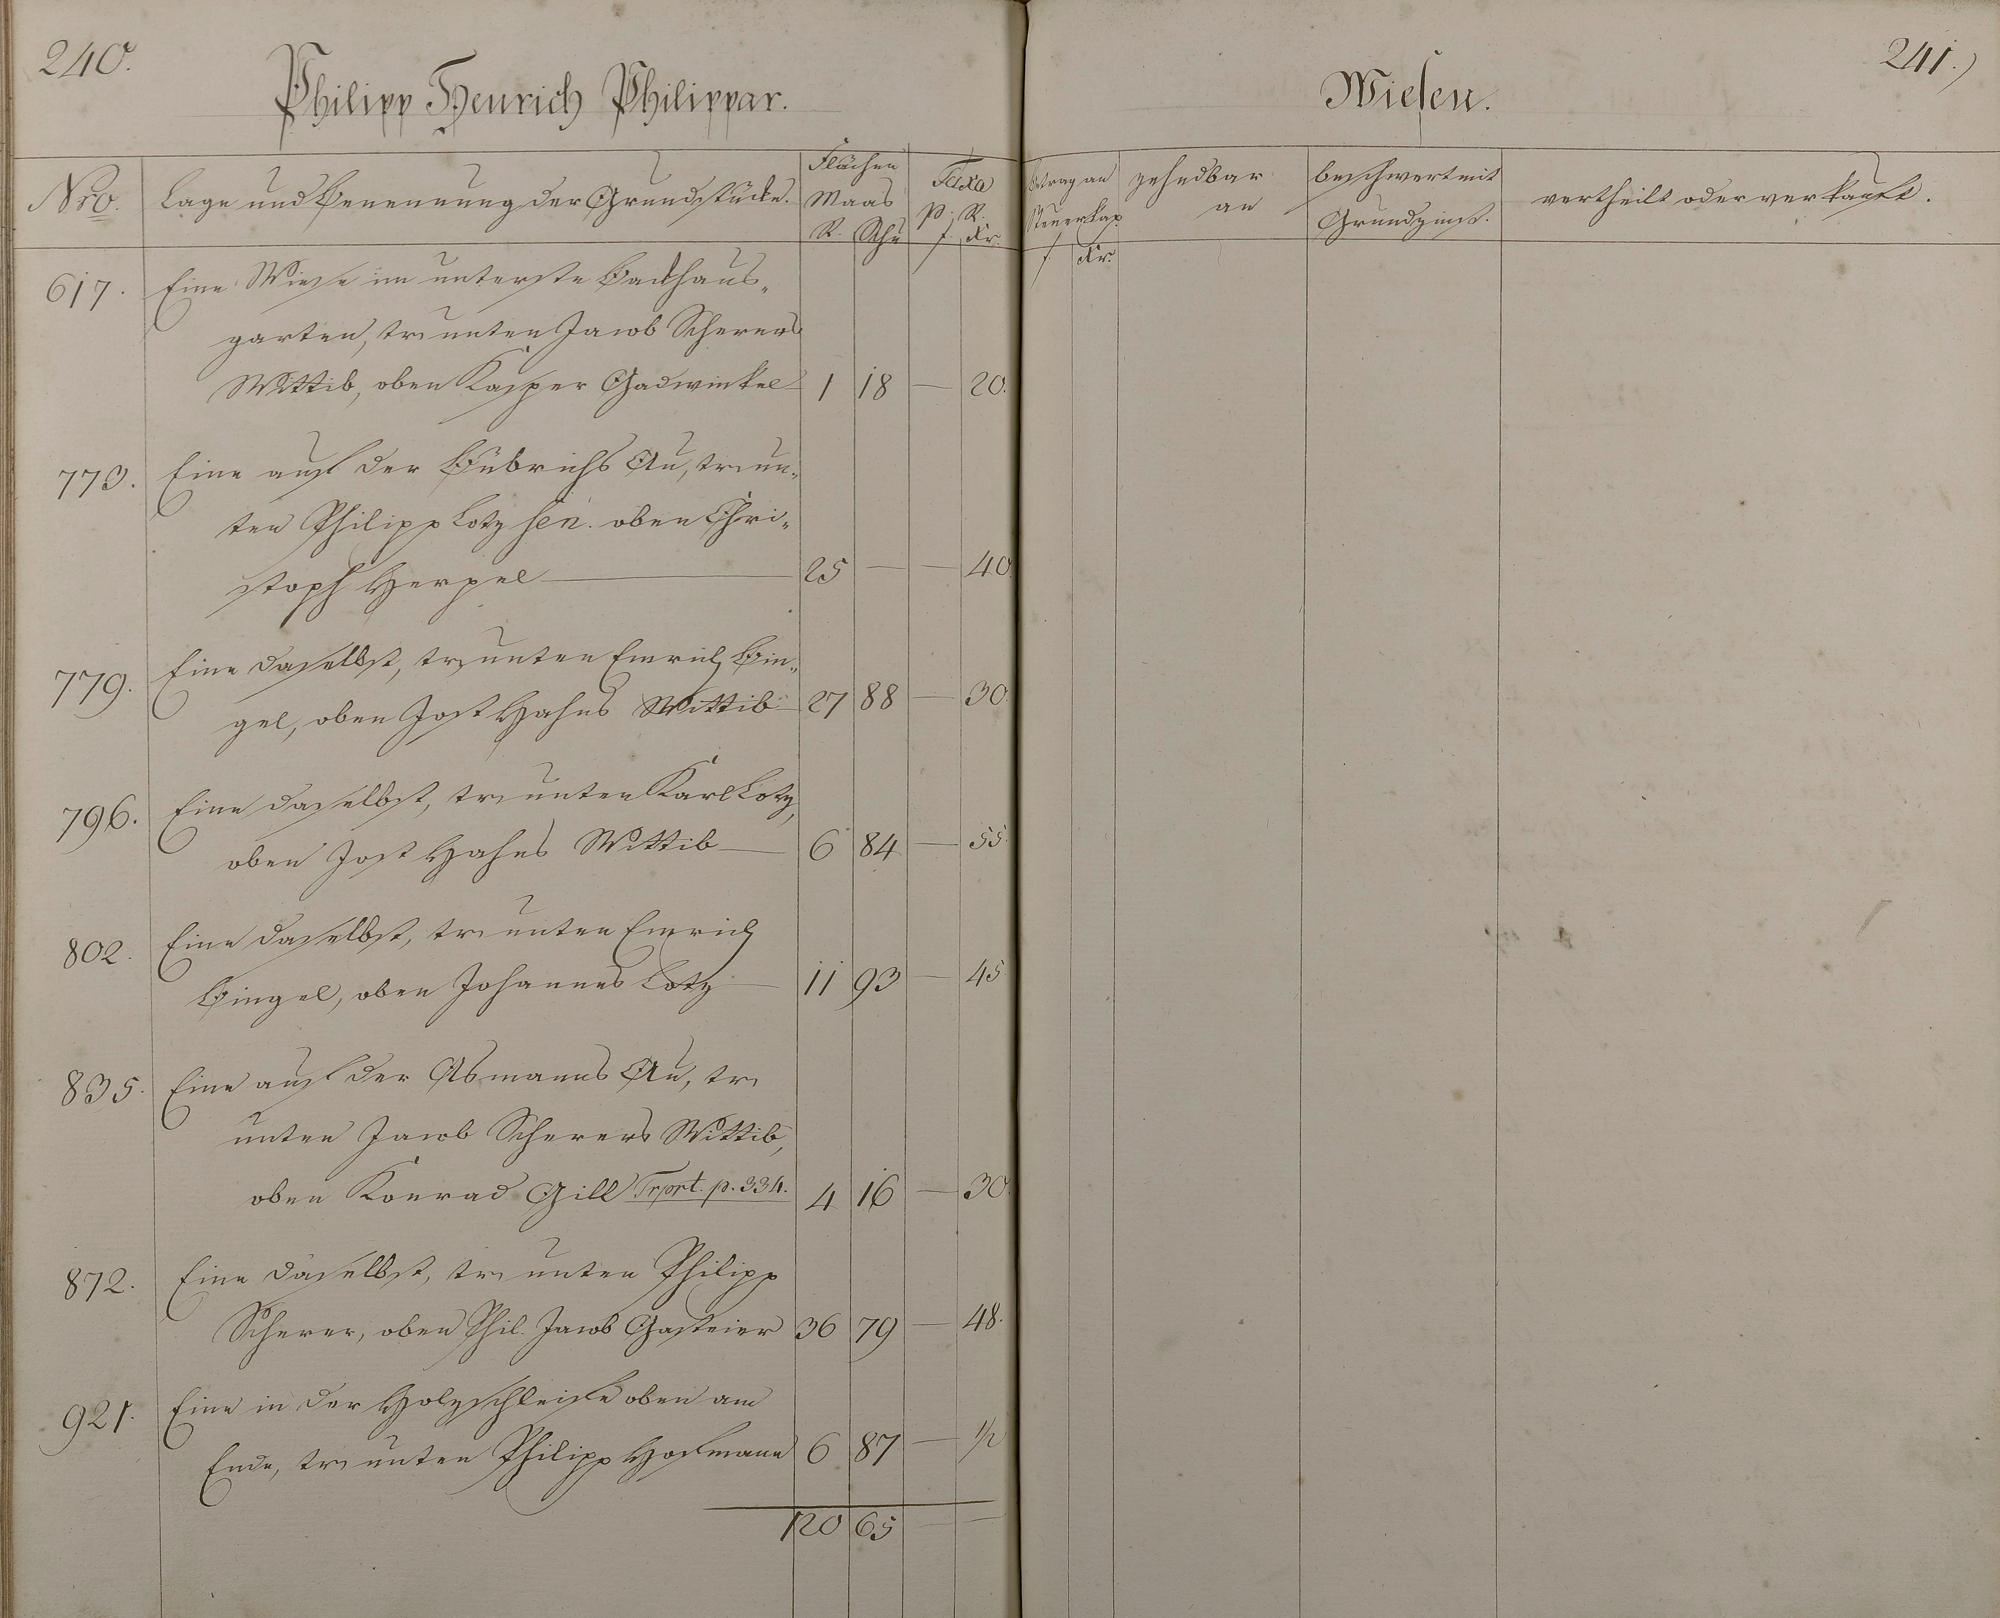 240.
Philipp Henrich Philippar.
Nro.
Lage und Benennung der Grundstücke.
Flächen
Maas
R. Schu
Taxa
p. R.
f. Kr.
617. Eine Wiese im unterste Backhaus-
garten, tr. unten Jacob Scherers
Wittib, oben Kasper Gadwinkel 1 18 — 20.
773. Eine auf der Bübrichs Au, tr. un-
ten Philipp Lotz sen. oben Chri-
stoph Herpel — 25 — — 40.
779. Eine daselbst, tr. unten Emrich Bin-
gel, oben Jost Hahns Wittib 27 88 — 30.
796. Eine daselbst, tr. unten Karl Lotz,
oben Jost Hahns Wittib — 6 84 — 55.
802. Eine daselbst, tr. unten Emrich
Bingel, oben Johannes Lotz — 11 93 — 45
835. Eine auf der Asmanns Au, tr.
unten Jacob Scherers Wittib,
oben Konrad Gill Trprt. p. 334. 4 16 — 30.
872. Eine daselbst, tr. unten Philipp
Scherer, oben Phil. Jacob Gasteier 36 79 — 48.
921. Eine in der Holzschleife oben am
Ende, tr. unten Philipp Hofmann 6 87 — 1/2
120 65 — —
241.)
Wiesen.
Betrag an
Steuerkap.
f. Kr.
zehndbar
an
beschwert mit
Grundzinß.
vertheilt oder verkauft.